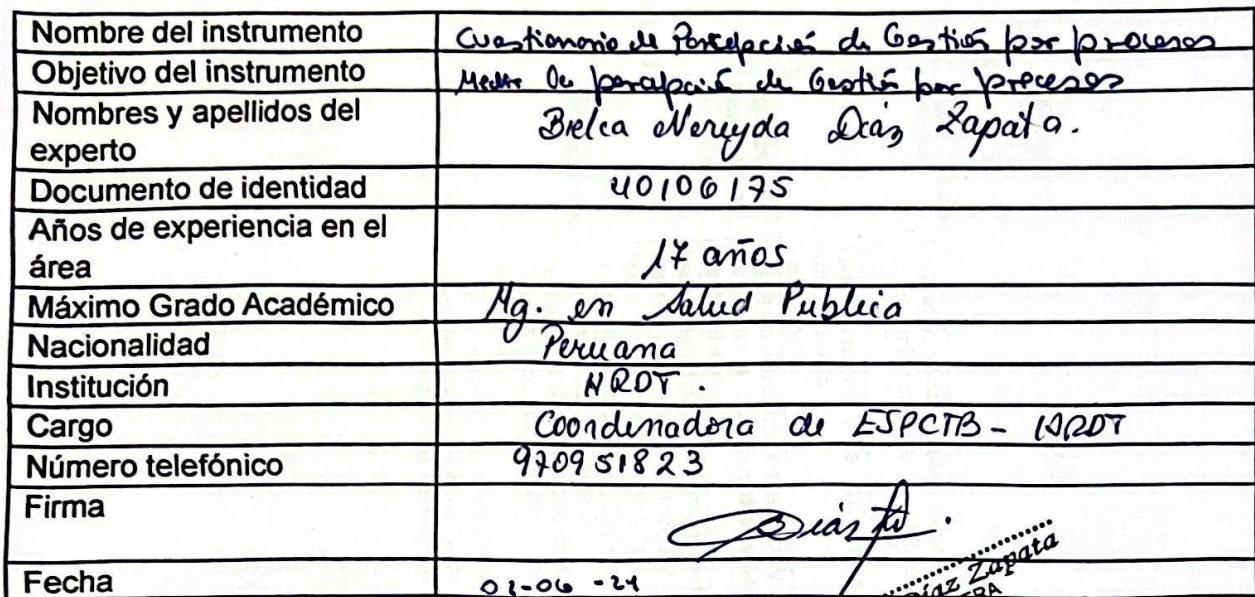 Nombre del instrumento Cuestionario de Percepción de Gestión por procesos
Objetivo del instrumento Medir la percepción de Gestión por procesos
Nombres y apellidos del
experto Bielca Nereyda Díaz Zapata.
Documento de identidad 40106175
Años de experiencia en el
área 17 años
Máximo Grado Académico Mg. en Salud Publica
Nacionalidad Peruana
Institución HRDT.
Cargo Coordinadora de ESPCTB - HRDT
Número telefónico 970951823
Firma
Díaz Zapata
Fecha -06-24